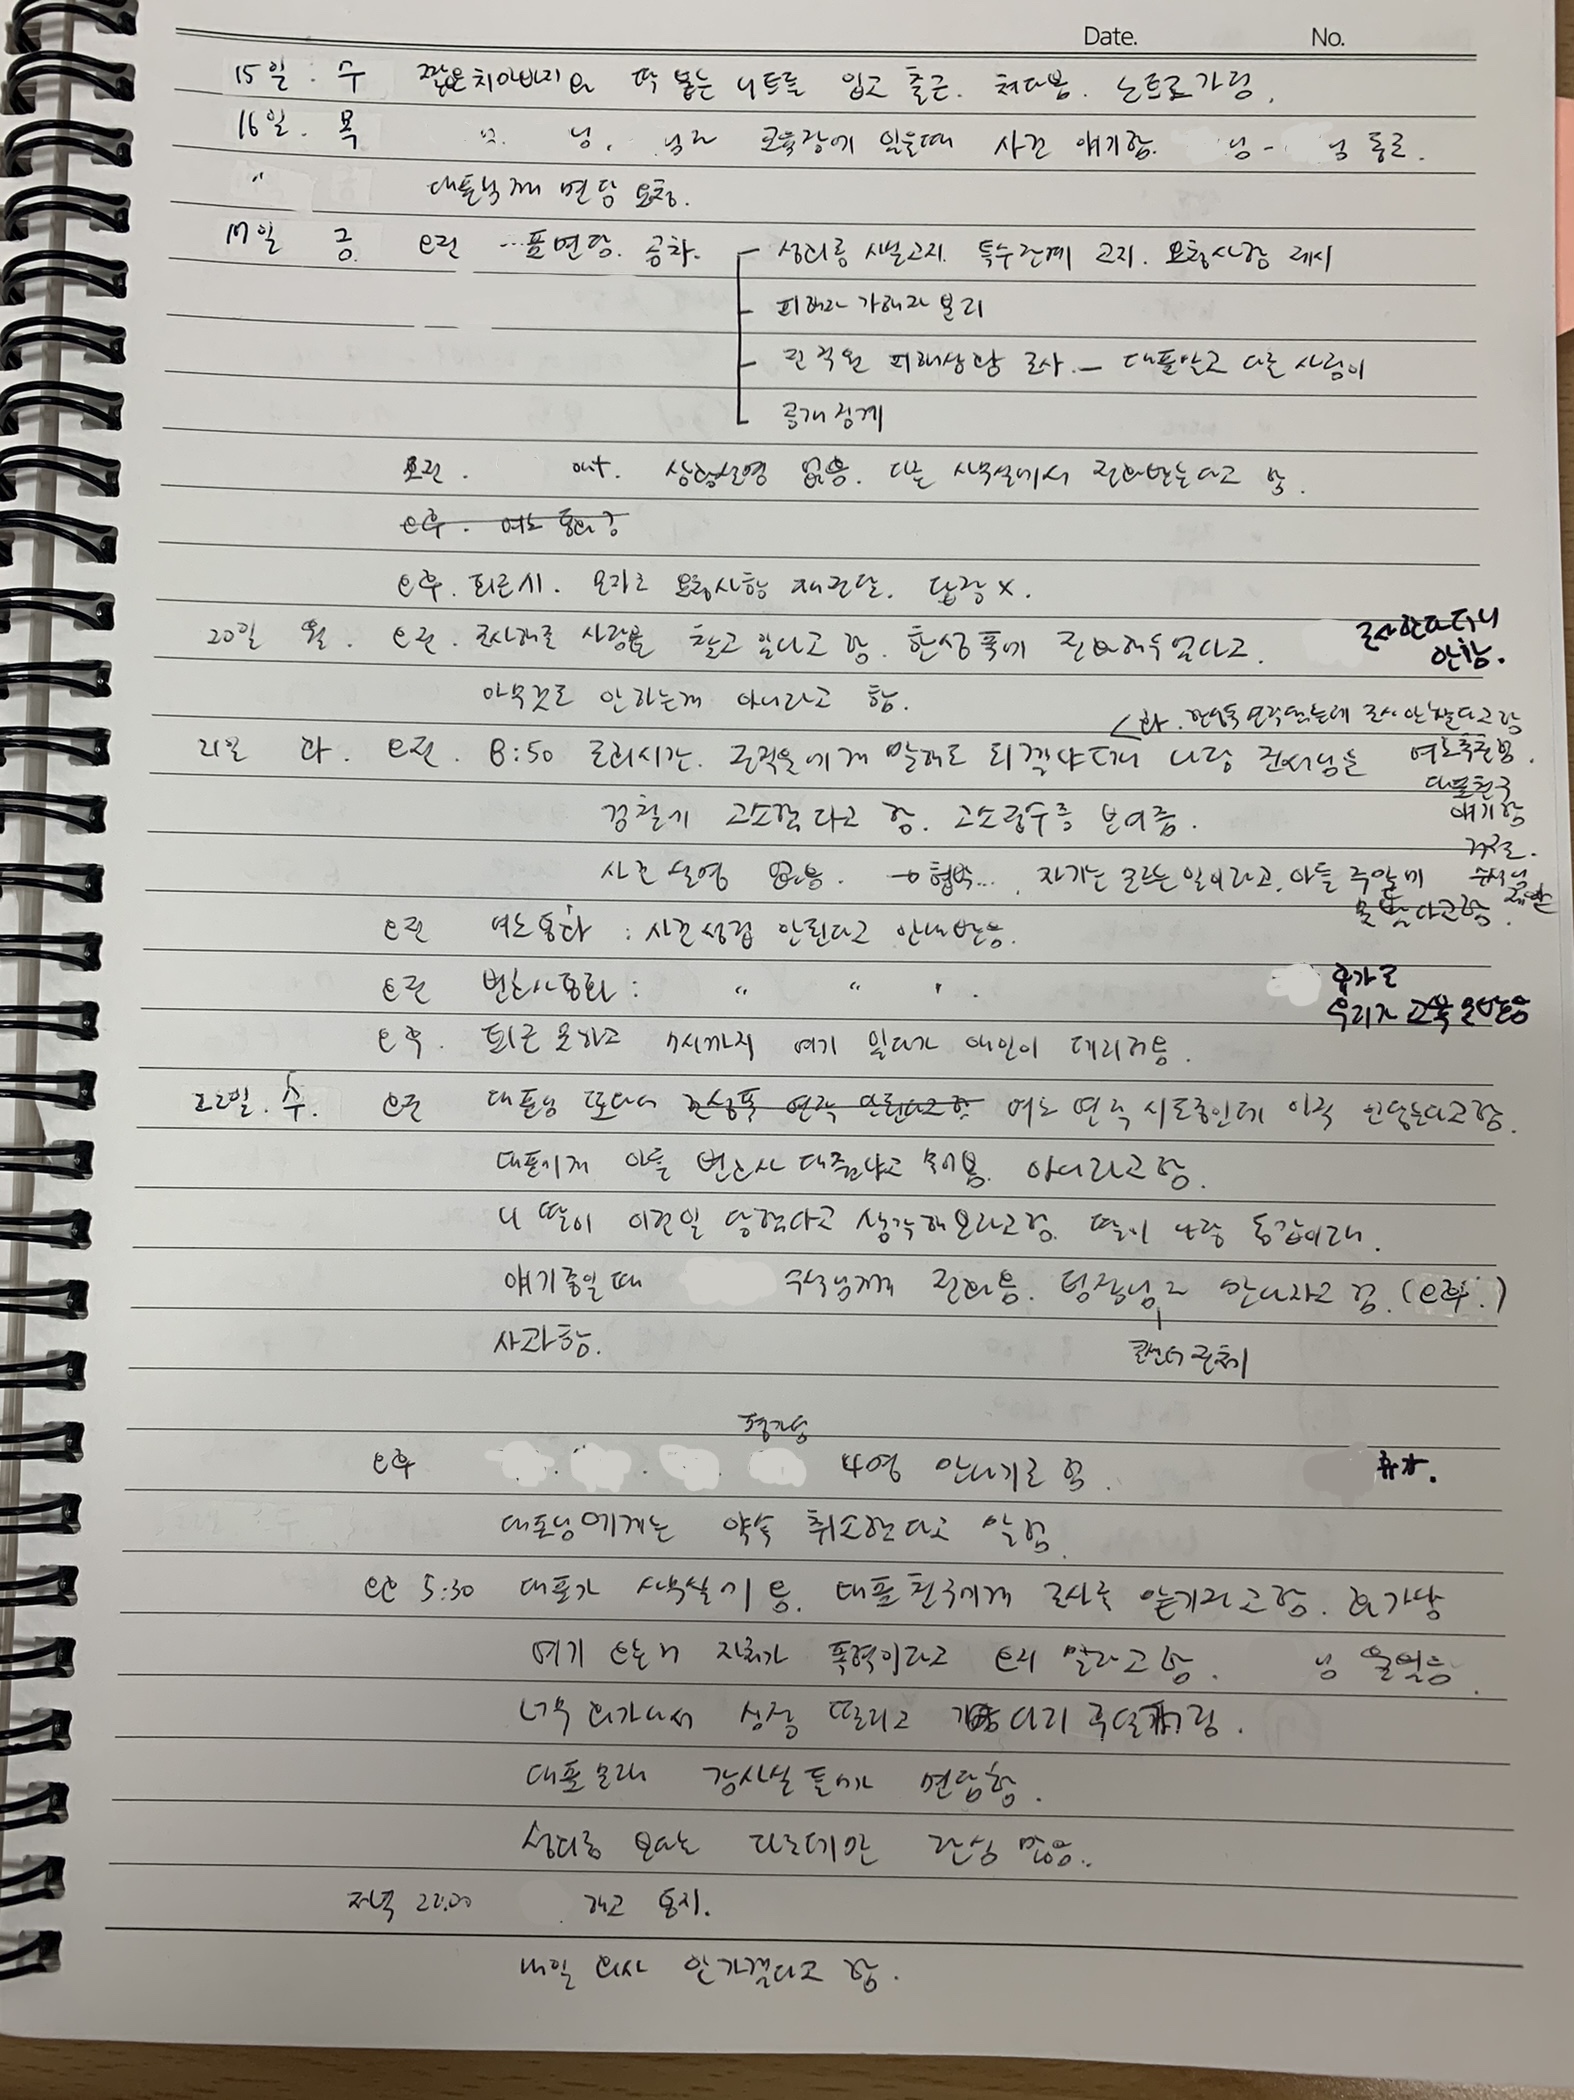 Date. No.
15일. 수 짧은 치마바지와 딱 붙는 니트를 입고 출근. 쳐다봄. 노트로 가림.
16일. 목 님, 님과 교육장에 있을때 사건 얘기함. 님 - 님 통로.
" 대표님께 면담 요청.
17일 금 오전 표면담. 공차. 성희롱 사실고지. 특수관계 고지. 요청사항 제시
피해자 가해자 분리
전직원 피해상황 조사. - 대표말고 다른 사람이
공개징계
오전. out. 상황설명 없음. 다른 사무실에서 전화받는다고 함.
오후. 여노 통화
오후. 퇴근시. 문자로 요청사항 재전달. 답장 x.
20일 월. 오전. 조사해줄 사람을 찾고 있다고 함. 한성폭에 전화해두었다고. 조사한다더니
안함.
아무것도 안하는게 아니라고 함.
화. 한성폭 연락했는데 조사 안한다고 함
21일 화. 오전. 8:50 조회시간. 전직원에게 말해도 되겠냐더니 나랑 님을 여노추천함.
대표친구
경찰에 고소했다고 함. 고소접수증 보여줌. 얘기함
거절.
사건 설명 없음. → 협박... 자기는 모르는 일이라고, 아들 주말에
못 봤다고 함.
오전 여노통화 : 사건성립 안된다고 안내받음.
오전 변호사통화 : " " " . 휴가로
우리가 교육 못받음
오후. 퇴근 못하고 7시까지 여기 있다가 애인이 데리러옴.
22일. 수. 오전 대표님 또다시 한성폭 연락 안된다고 함 여노 연락 시도중인데 아직 안받는다고 함.
대표에게 아들 변호사 대줬냐고 물어봄. 아니라고 함.
니 딸이 이런일 당했다고 생각해보라고 함. 딸이 나랑 동갑이래.
얘기중일때 수석님께 전화옴. 팀장님과 만나자고 함. (오후.)
사과함. 모센터 전체
오후 4명 만나기로 함. 휴가.
대표님에게는 약속 취소한다고 말함.
오후 5:30 대표가 사무실에 옴. 대표 친구에게 조사를 맡기라고 함. 화가남
여기 오는거 자체가 폭력이라고 오지 말라고 함. 님 울었음.
너무 화가나서 상점 때리고 다리 주먹
대표 몰래 감사실 들어가 면담함.
성희롱 보다는 다른데만 관심 많음..
저녁 22:00 해고 통지.
내일 회사 안가겠다고 함.